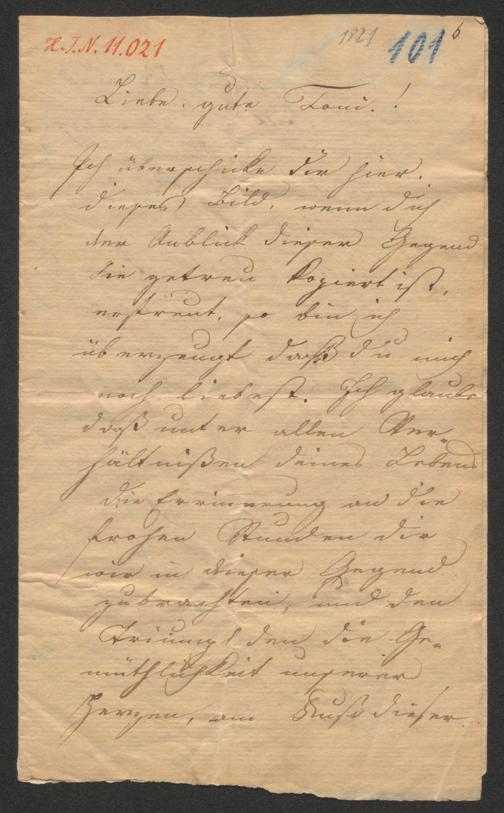 H.I.N. 11.021
1821
101
6
Liebe, gute Toni!
Ich überschicke dir hier
dieses Bild, wenn dich
der Anblick dieser Gegend
die getreu kopiert ist,
erfreut, so bin ich
überzeugt daß du mich
noch liebest. Ich glaube
daß unter allen Ver-
hältnißen deines Lebens
die Errinnerung an die
frohen Stunden die
wir in dieser Gegend
zubrachten, und den
Triumpf den die Ge-
müthlichkeit unserer
Herzen, am Fuße dieser